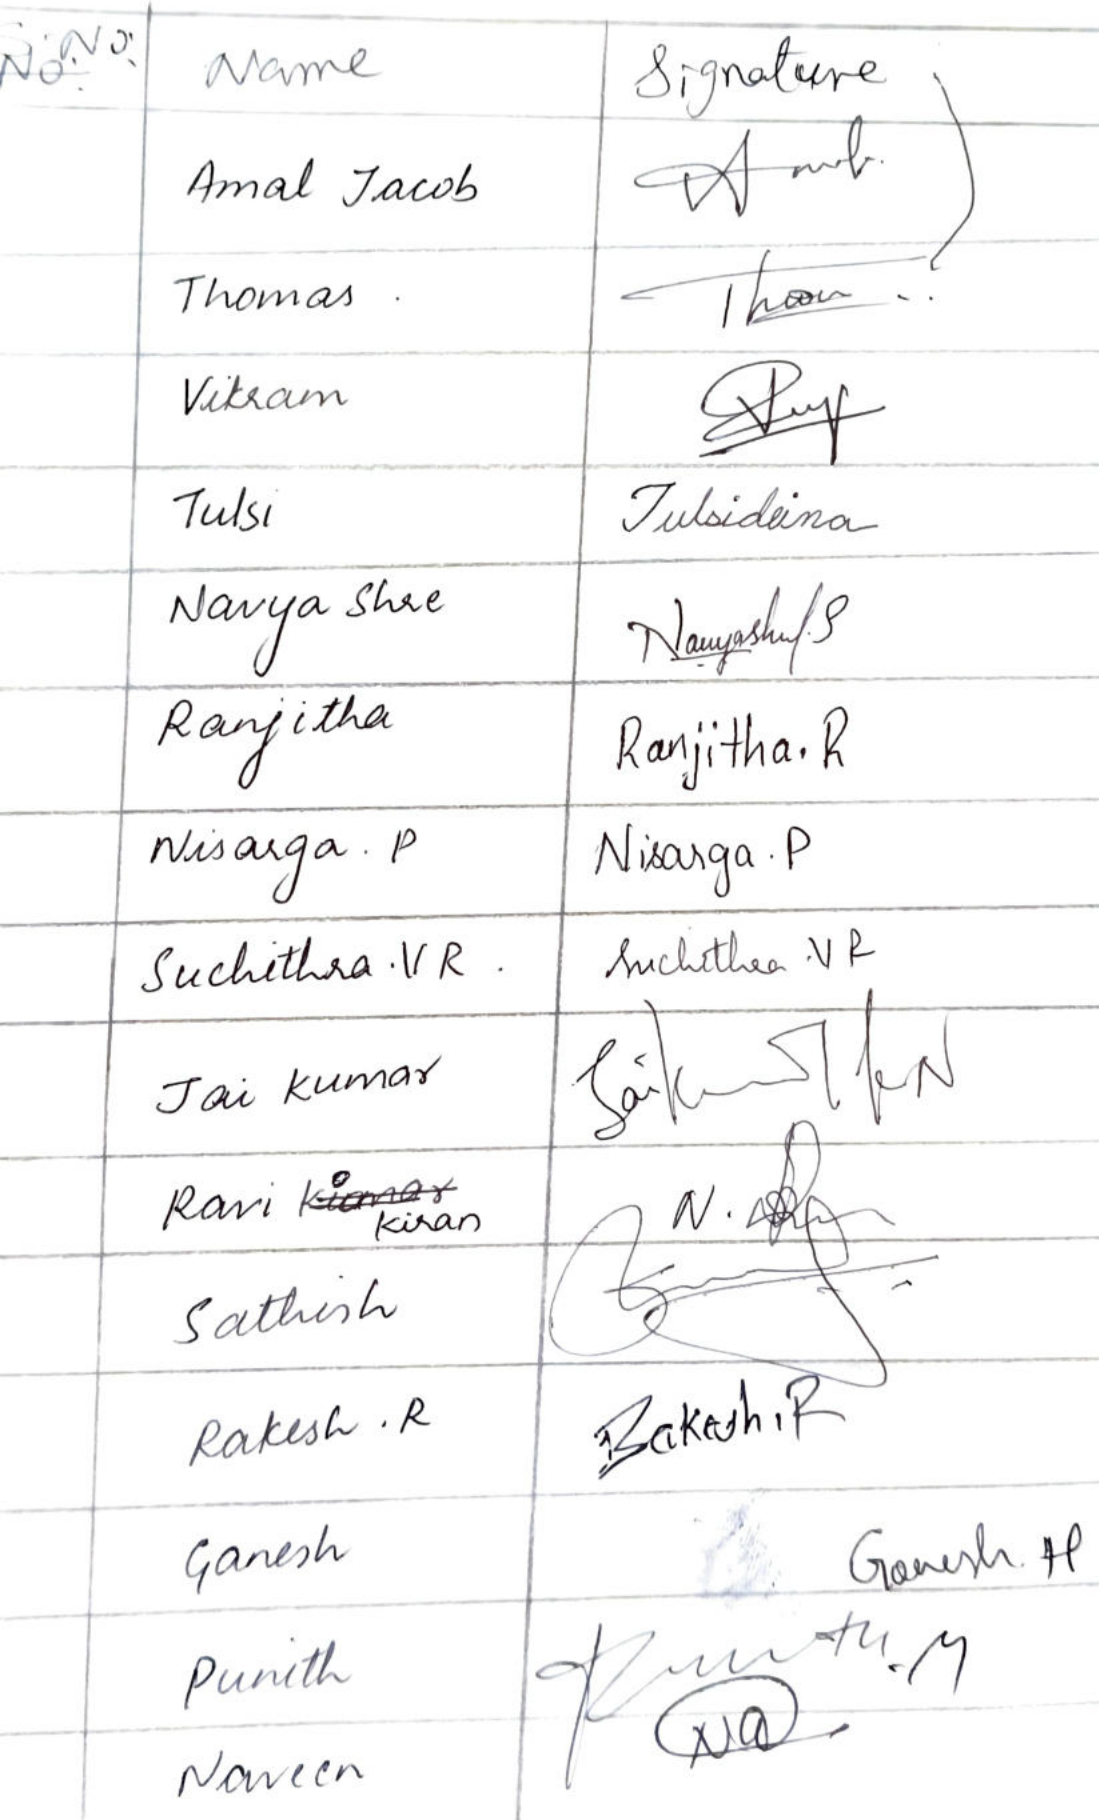 S.No. Name Signature
No.
Amal Jacob
Thomas .
Vikram
Tulsi Tulsideina
Navya Shree Navyashree.S
Ranjitha Ranjitha.R
Nisarga. P Nisarga.P
Suchithra.V R . Suchithra.V R
Jai Kumar
Ravi Kiran
Sathish
Rakesh.R Rakesh.R
Ganesh Ganesh.H
Punith Punith.M
Naveen